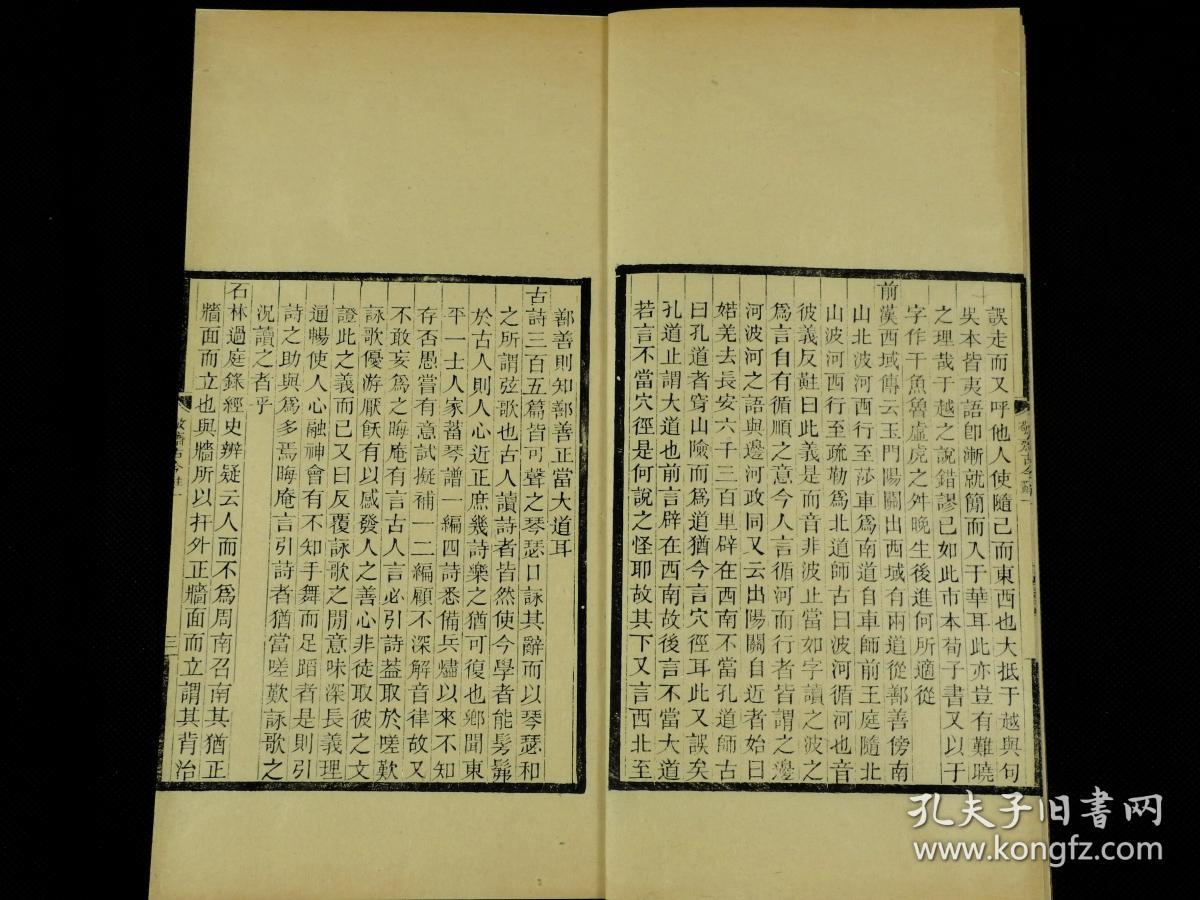 誤走而又呼他人使隨己而東西也大抵于越與句
㕦本皆夷語卽漸就簡而入于華耳此亦豈有難曉
之理哉于越之說錯謬已如此市本荀子書又以于
字作干魚魯虛虎之舛晚生後進何所適從
前漢西域傳云玉門陽關出西域有兩道從鄯善傍南
山北波河西行至莎車爲南道自車師前王庭隨北
山波河西行至疏勒爲北道師古曰波河循河也音
彼義反㪵曰此義是而音非波止當如字讀之波之
爲言自有循順之意今人言循河而行者皆謂之邊
河波河之語與邊河政同又云出陽關自近者始曰
婼羌去長安六千三百里辟在西南不當孔道師古
曰孔道者穿山險而爲道猶今言穴徑耳此又誤矣
孔道止謂大道也前言辟在西南故後言不當大道
若言不當穴徑是何說之怪耶故其下又言西北至
鄯善則知鄯善正當大道耳
古詩三百五篇皆可聲之琴瑟口詠其辭而以琴瑟和
之所謂弦歌也古人讀詩者皆然使今學者能髣髴
於古人則人心近正庶幾詩樂之猶可復也鄉聞東
平一士人家蓄琴譜一編四詩悉備兵燼以來不知
存否愚嘗有意試擬補一二編顧不深解音律故又
不敢妄爲之晦庵有言古人言必引詩葢取於嗟歎
詠歌優游厭飫有以感發人之善心非徒取彼之文
證此之義而已又曰反覆詠歌之閒意味深長義理
通暢使人心融神會有不知手舞而足蹈者是則引
詩之助與爲多焉晦庵言引詩者猶當嗟歎詠歌之
況讀之者乎
石林過庭錄經史辨疑云人而不爲周南召南其猶正
牆面而立也與牆所以扞外正牆面而立謂其背治
敬齋古今黈一
三
孔夫子旧书网
www.kongfz.com